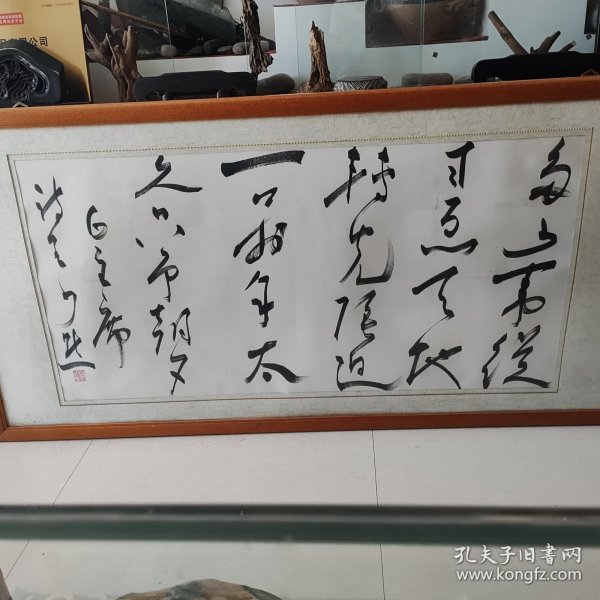 多少事從
来急天地
轉光陰迫
一万年太
久只争朝夕
毛主席
公司
孔夫子旧书网
www.kongfz.com